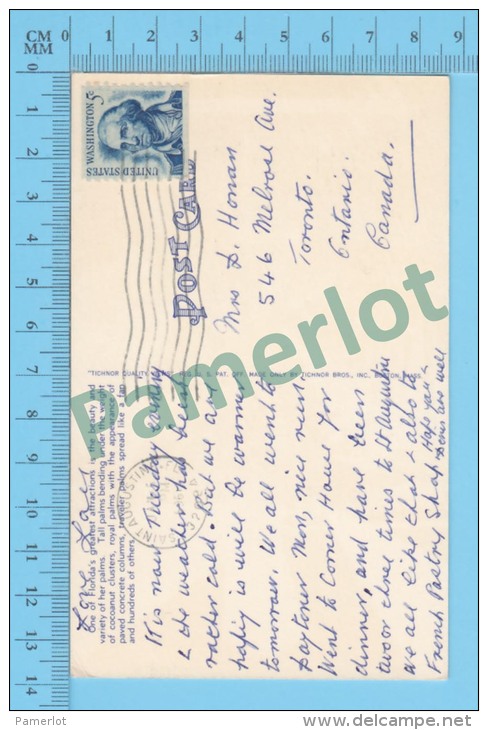 CM
MM
0 1 2 3 4 5 6 7 8 9
0
1
2
3
4
5
6
7
8
9
10
11
12
13
14
WASHINGTON 5c
UNITED STATES
POST CARD
Mrs D. Honan
546 Melrose Ave.
Toronto.
Ontario.
Canada.
"TICHNOR QUALITY REG. U. S. PAT. OFF. MADE ONLY BY TICHNOR BROS., INC., BOSTON, MASS.
One of Florida's greatest attractions is the beauty and
variety of her palms. Tall palms bending under the weight
of cocoanut clusters, royal palms with the appearance of
paved concrete columns, traveler palms spread like a fan
and hundreds of others.
SAINT AUGUSTINE
It is now Tuesday evening
& the weather has been
rather cold. But we are
hoping it will be warmer
tomorrow. We all went to
Daytona Mon, nice visit
Went to Corner House for
dinner, and have been
two or three times to St Augustine
we all like that & also to
French Pastry Shop. Hope you &
Denis are well
Love Lois
Pamerlot
Pamerlot